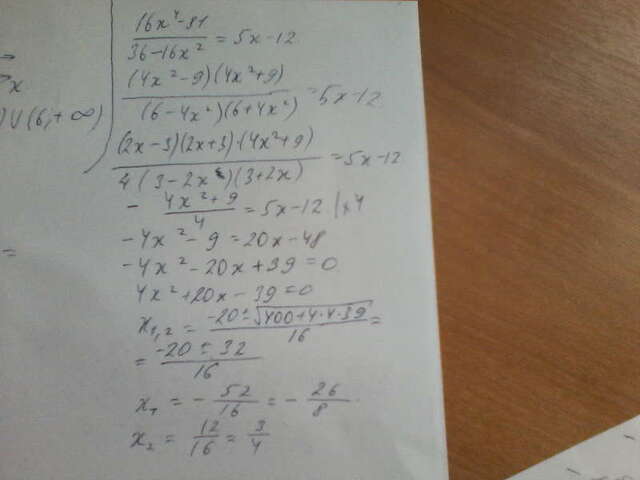 (16x⁴-81)/(36-16x²) = 5x-12
((4x²-9)(4x²+9))/((6-4x²)(6+4x²)) = 5x-12
((2x-3)(2x+3)(4x²+9))/(4(3-2x)(3+2x)) = 5x-12
- (4x²+9)/4 = 5x-12 |x4
-4x²-9 = 20x-48
-4x²-20x+39=0
4x²+20x-39=0
x₁,₂ = (-20±√(400+4·4·39))/16 =
= (-20±32)/16
x₁ = -52/16 = -26/8
x₂ = 12/16 = 3/4
x
)U(6;+∞)
=